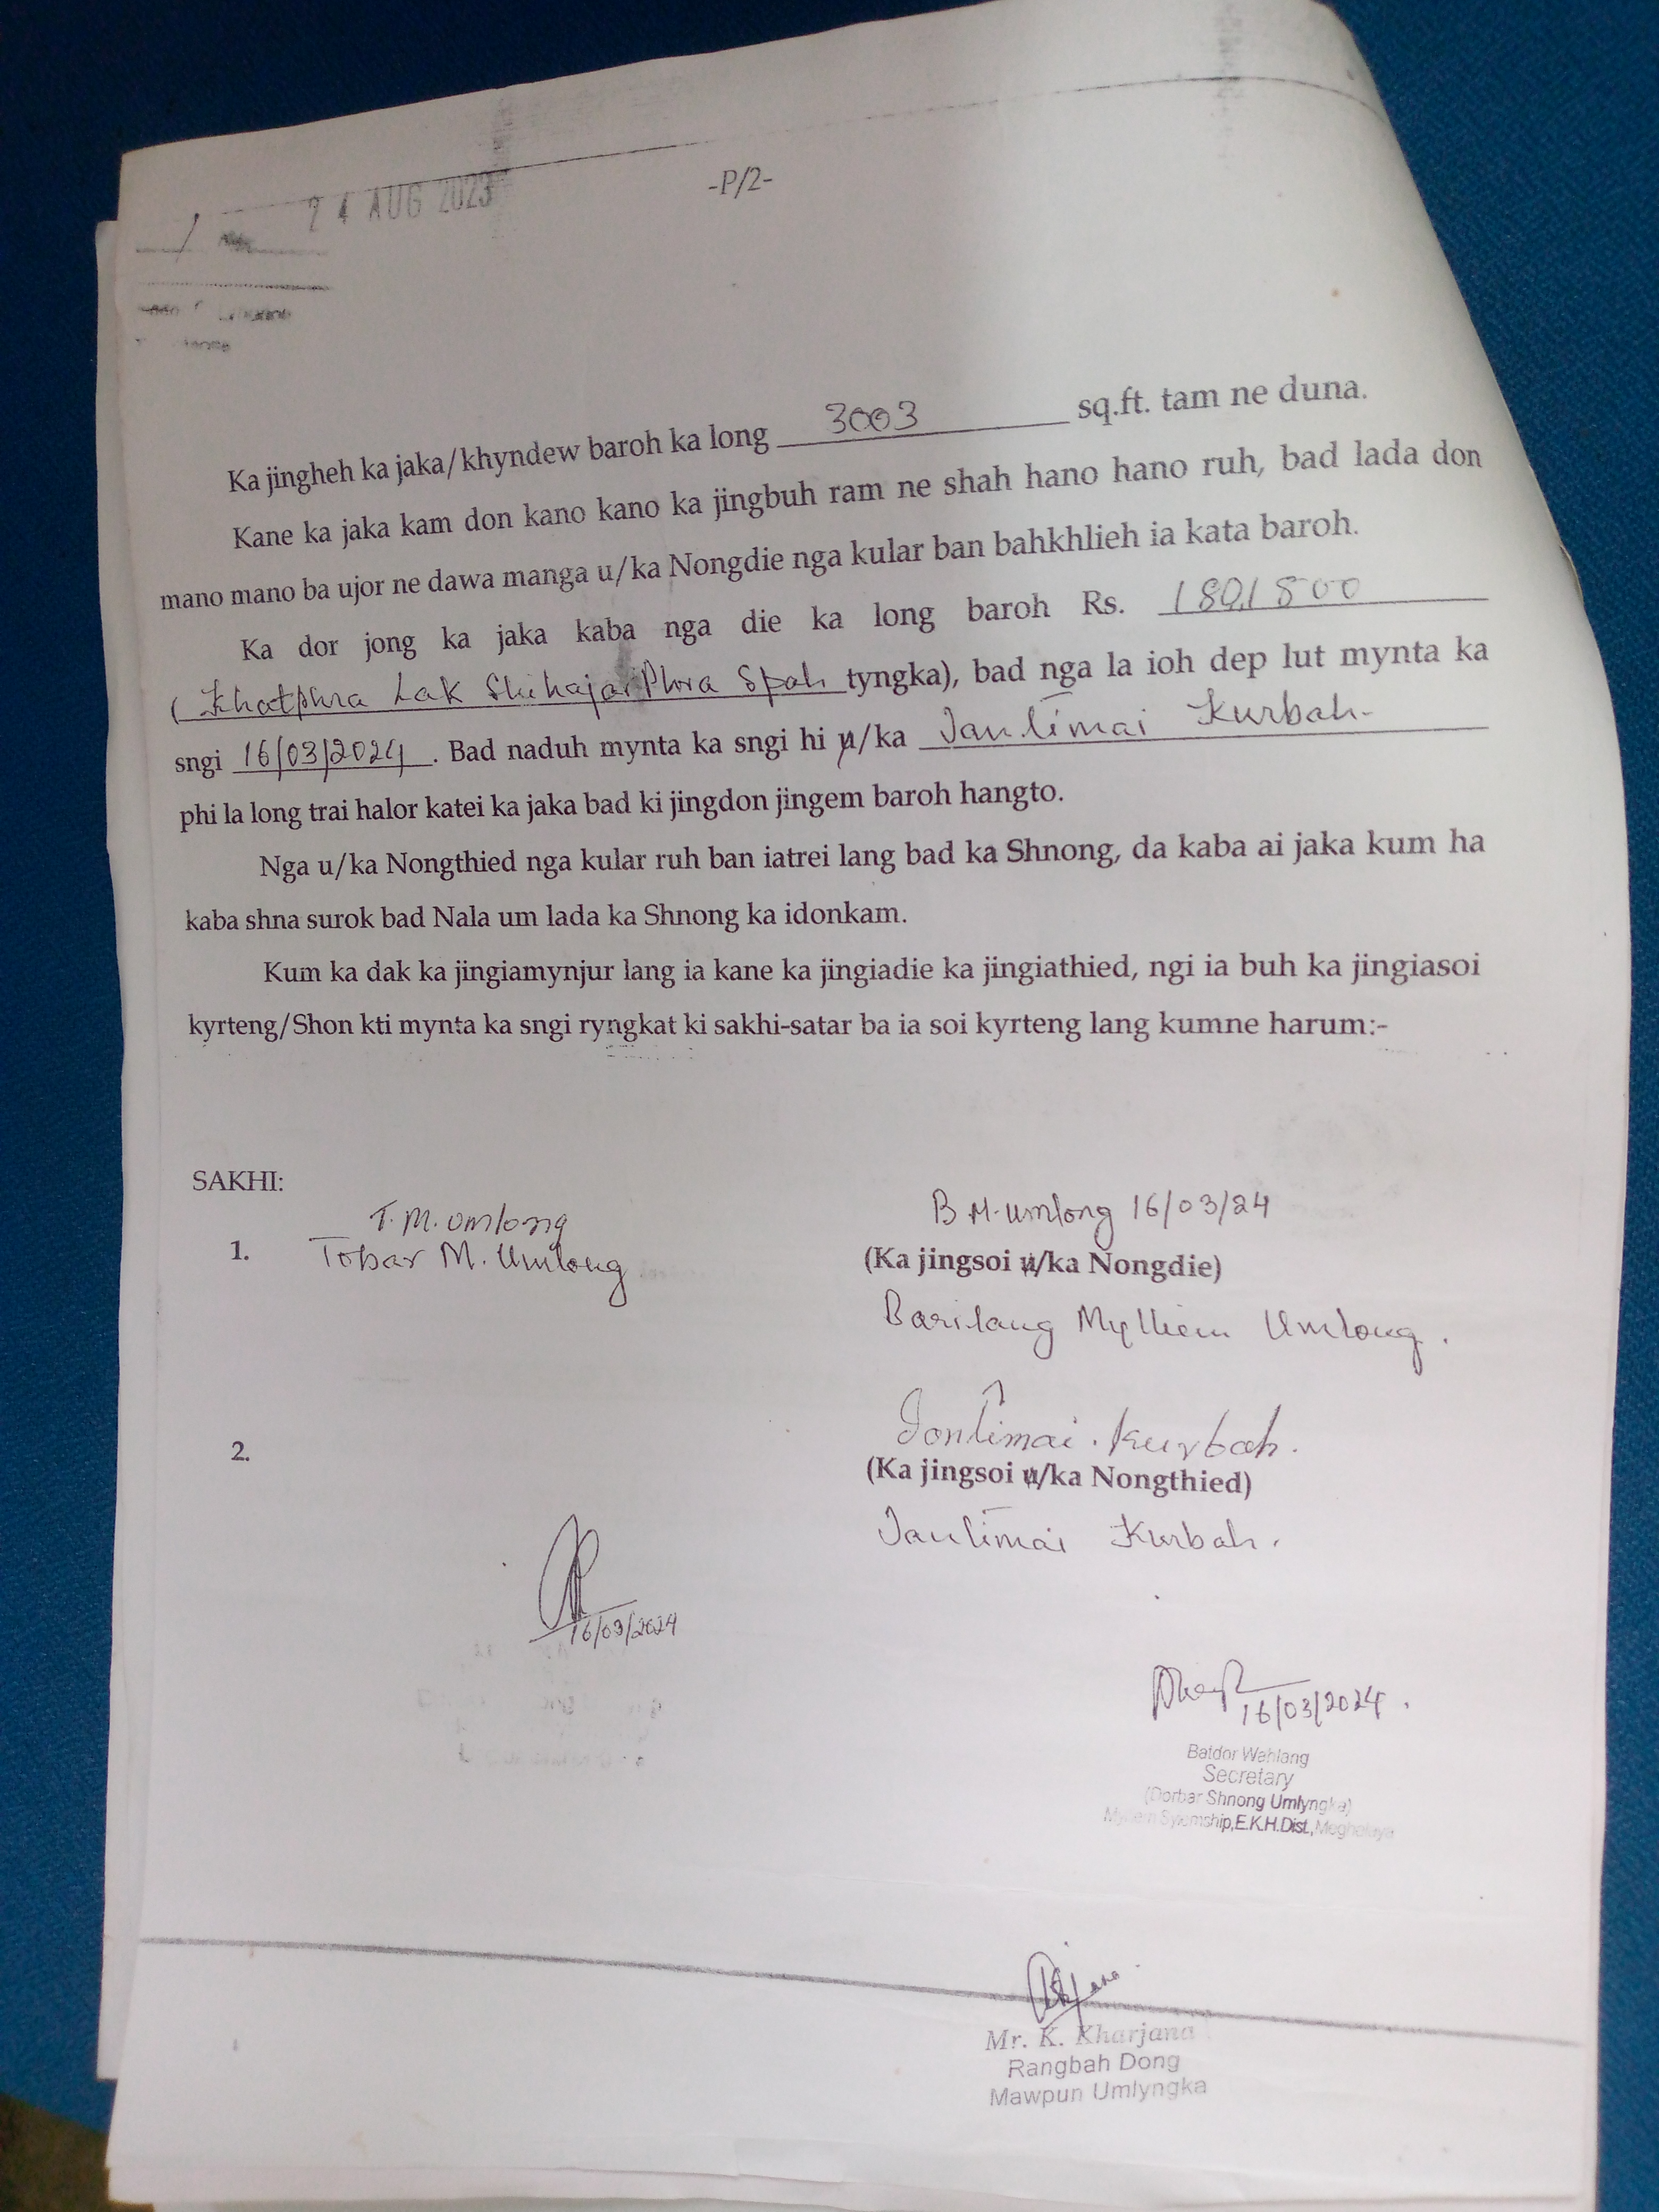 -P/2-
24 AUG 2023
Ka jingheh ka jaka/khyndew baroh ka long 3003 sq.ft. tam ne duna.
Kane ka jaka kam don kano kano ka jingbuh ram ne shah hano hano ruh, bad lada don
mano mano ba ujor ne dawa manga u/ka Nongdie nga kular ban bahkhlieh ia kata baroh.
Ka dor jong ka jaka kaba nga die ka long baroh Rs. 1801800
(Khatphra Lak Shihajar Phra Spah tyngka), bad nga la ioh dep lut mynta ka
sngi 16/03/2024. Bad naduh mynta ka sngi hi u/ka Ianlimai Kurbah
phi la long trai halor katei ka jaka bad ki jingdon jingem baroh hangto.
Nga u/ka Nongthied nga kular ruh ban iatrei lang bad ka Shnong, da kaba ai jaka kum ha
kaba shna surok bad Nala um lada ka Shnong ka idonkam.
Kum ka dak ka jingiamynjur lang ia kane ka jingiadie ka jingiathied, ngi ia buh ka jingiasoi
kyrteng/Shon kti mynta ka sngi ryngkat ki sakhi-satar ba ia soi kyrteng lang kumne harum:-
SAKHI:
T. M. Umlong
1. Tobar M. Umlong
B M. Umlong 16/03/24
(Ka jingsoi u/ka Nongdie)
Barilang Mylliem Umlong.
2.
Ionlimai. Kurbah.
(Ka jingsoi u/ka Nongthied)
Ianlimai Kurbah.
16/03/2024
16/03/2024.
Batdor Wahlang
Secretary
(Dorbar Shnong Umlyngka)
Mylliem Syiemship, E.K.H.Dist., Meghalaya
Mr. K. Kharjana
Rangbah Dong
Mawpun Umlyngka